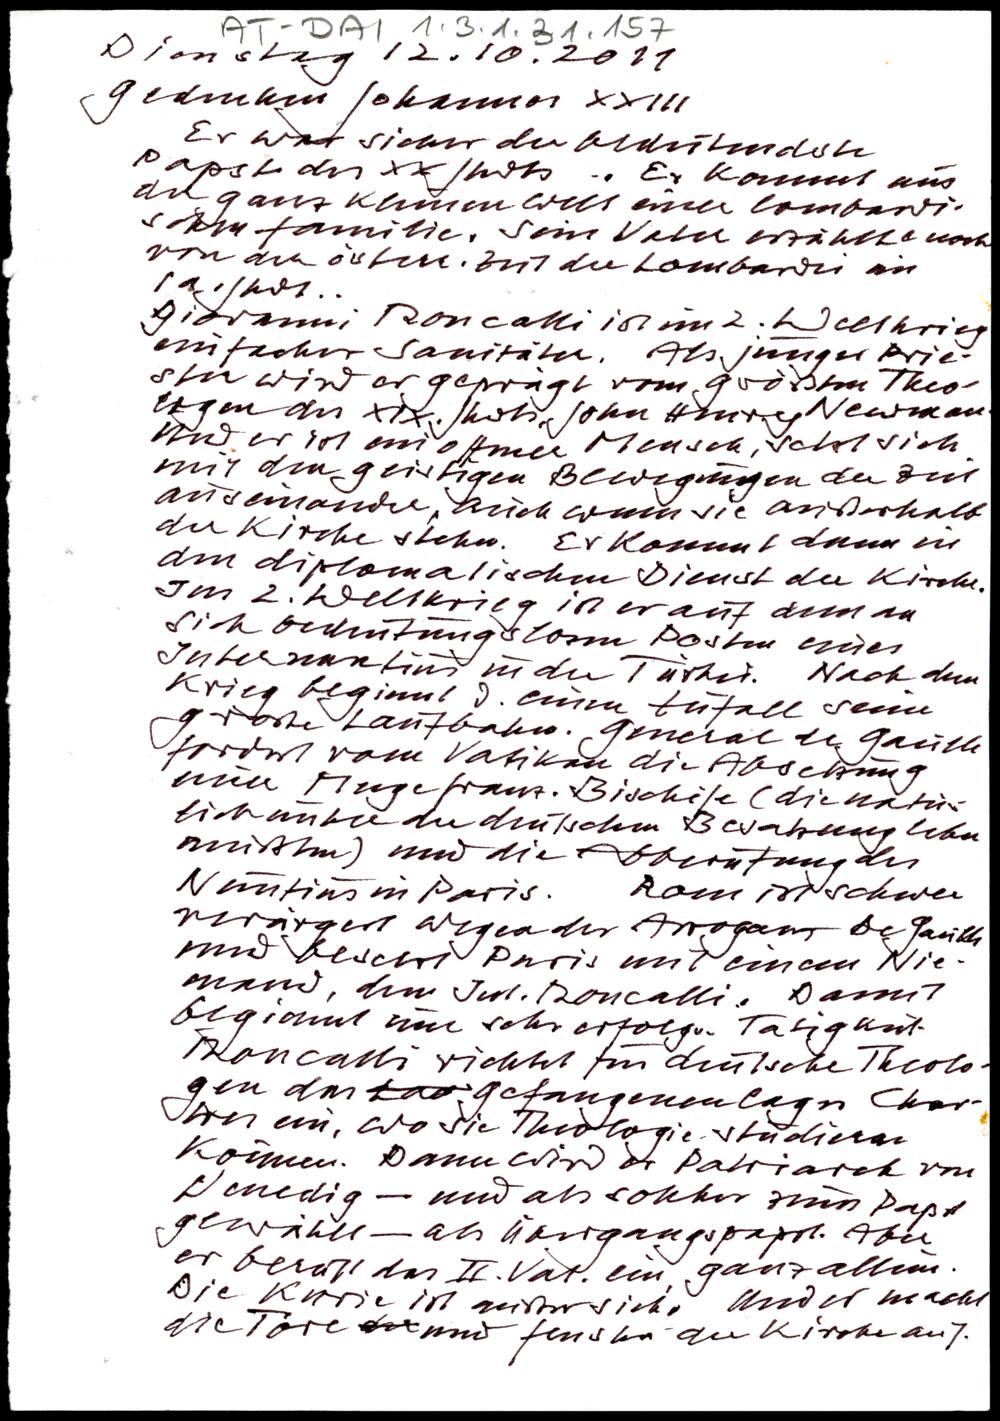 AT-DAI 1.3.1.31.157
Dienstag 12.10.2011
Gedenken Johannes XXIII
Er war sicher der bedeutendste
Papst des XX Jhdts .. Er kommt aus
der ganz kleinen Welt einer lombardi-
schen Familie. Sein Vater erzählte noch
von der österr. Zeit der Lombardei im
19. Jhdt..
Giovanni Roncalli ist im 2. Weltkrieg
einfacher Sanitäter. Als junger Prie-
ster wird er geprägt vom größten Theo-
logen des XIX. Jhdts, John Henrey Newman.
Und er ist ein offener Mensch, setzt sich
mit den geistigen Bewegungen der Zeit
auseinander, auch wenn sie außerhalb
der Kirche stehen. Er kommt dann in
den diplomatischen Dienst der Kirche.
Im 2. Weltkrieg ist er auf dem an
sich bedeutungslosen Posten eines
Internuntius in der Türkei. Nach dem
Krieg beginnt d. einen Zufall seine
große Laufbahn. General de Gaulle
fordert vom Vatikan die Absetzung
einer Menge franz. Bischöfe (die natür-
lich unter der deutschen Besatzung leben
mußten) und die Abberufung des
Nuntius in Paris. Rom ist schwer
verärgert wegen der Arroganz De Gaulles
und besetzt Paris mit einem Nie-
mand, dem Int. Roncalli. Damit
beginnt eine sehr erfolgr. Tätigkeit
Roncalli richtet für deutsche Theolo-
gen das Gefangenenlager Char-
tres ein, wo sie Theologie studieren
können. Dann wird er Patriarch von
Venedig — und als solcher zum Papst
gewählt — als Übergangspapst. Aber
er beruft das II. Vat. ein, ganz allein.
Die Kurie ist außer sich. Und er macht
die Tore und Fenster der Kirche auf.